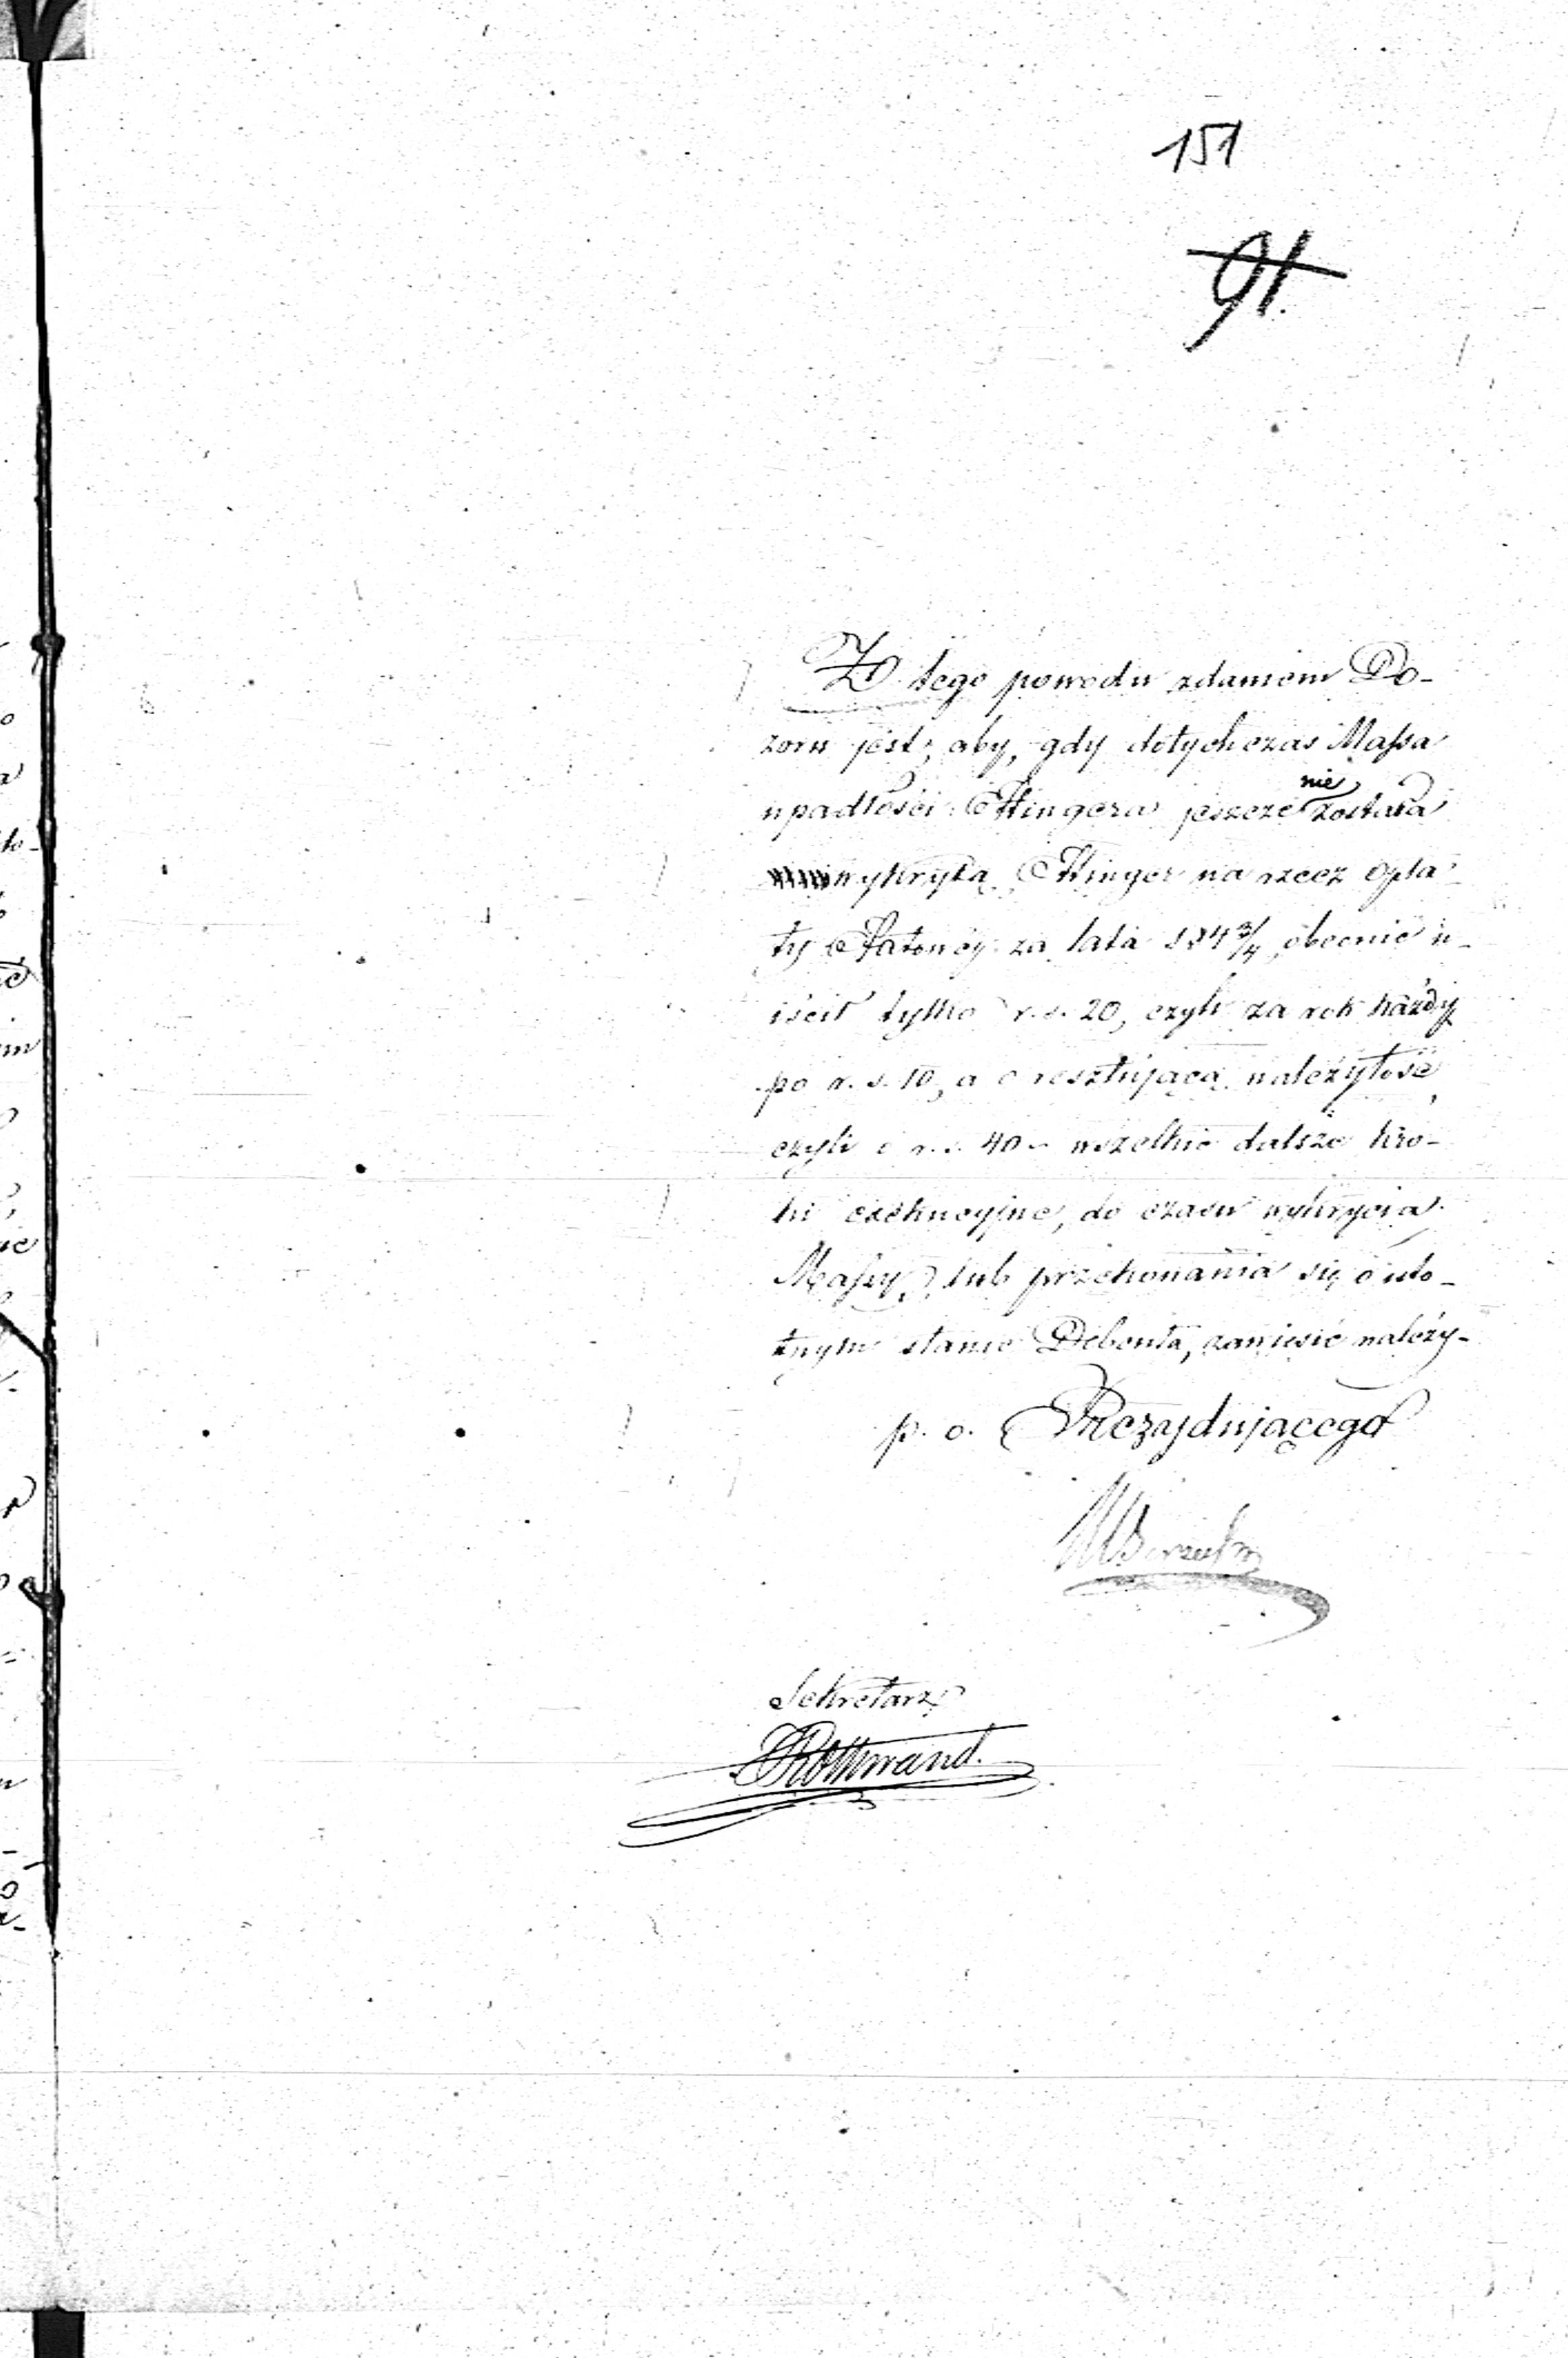 151
91.
Z tego powodu zdaniem Do-
zoru jest, aby, gdy dotychczas Massa
upadłości Ettingera jeszcze nie została
wykrytą Ettinger na rzecz opła-
ty Patentowej za lata 184 3/4, obecnie u-
iścił tylko r. s. 20, czyli za rok każdy
po r. s. 10, a o resztującą należytość,
czyli o r. s. 40 wszelkie dalsze kro-
ki exekucyjne, do czasu wykrycia
Massy, lub przekonania się o isto-
tnym stanie Debenta, zawiesić należy-
p. o. Prezydującego
Sekretarz
Rottwand.